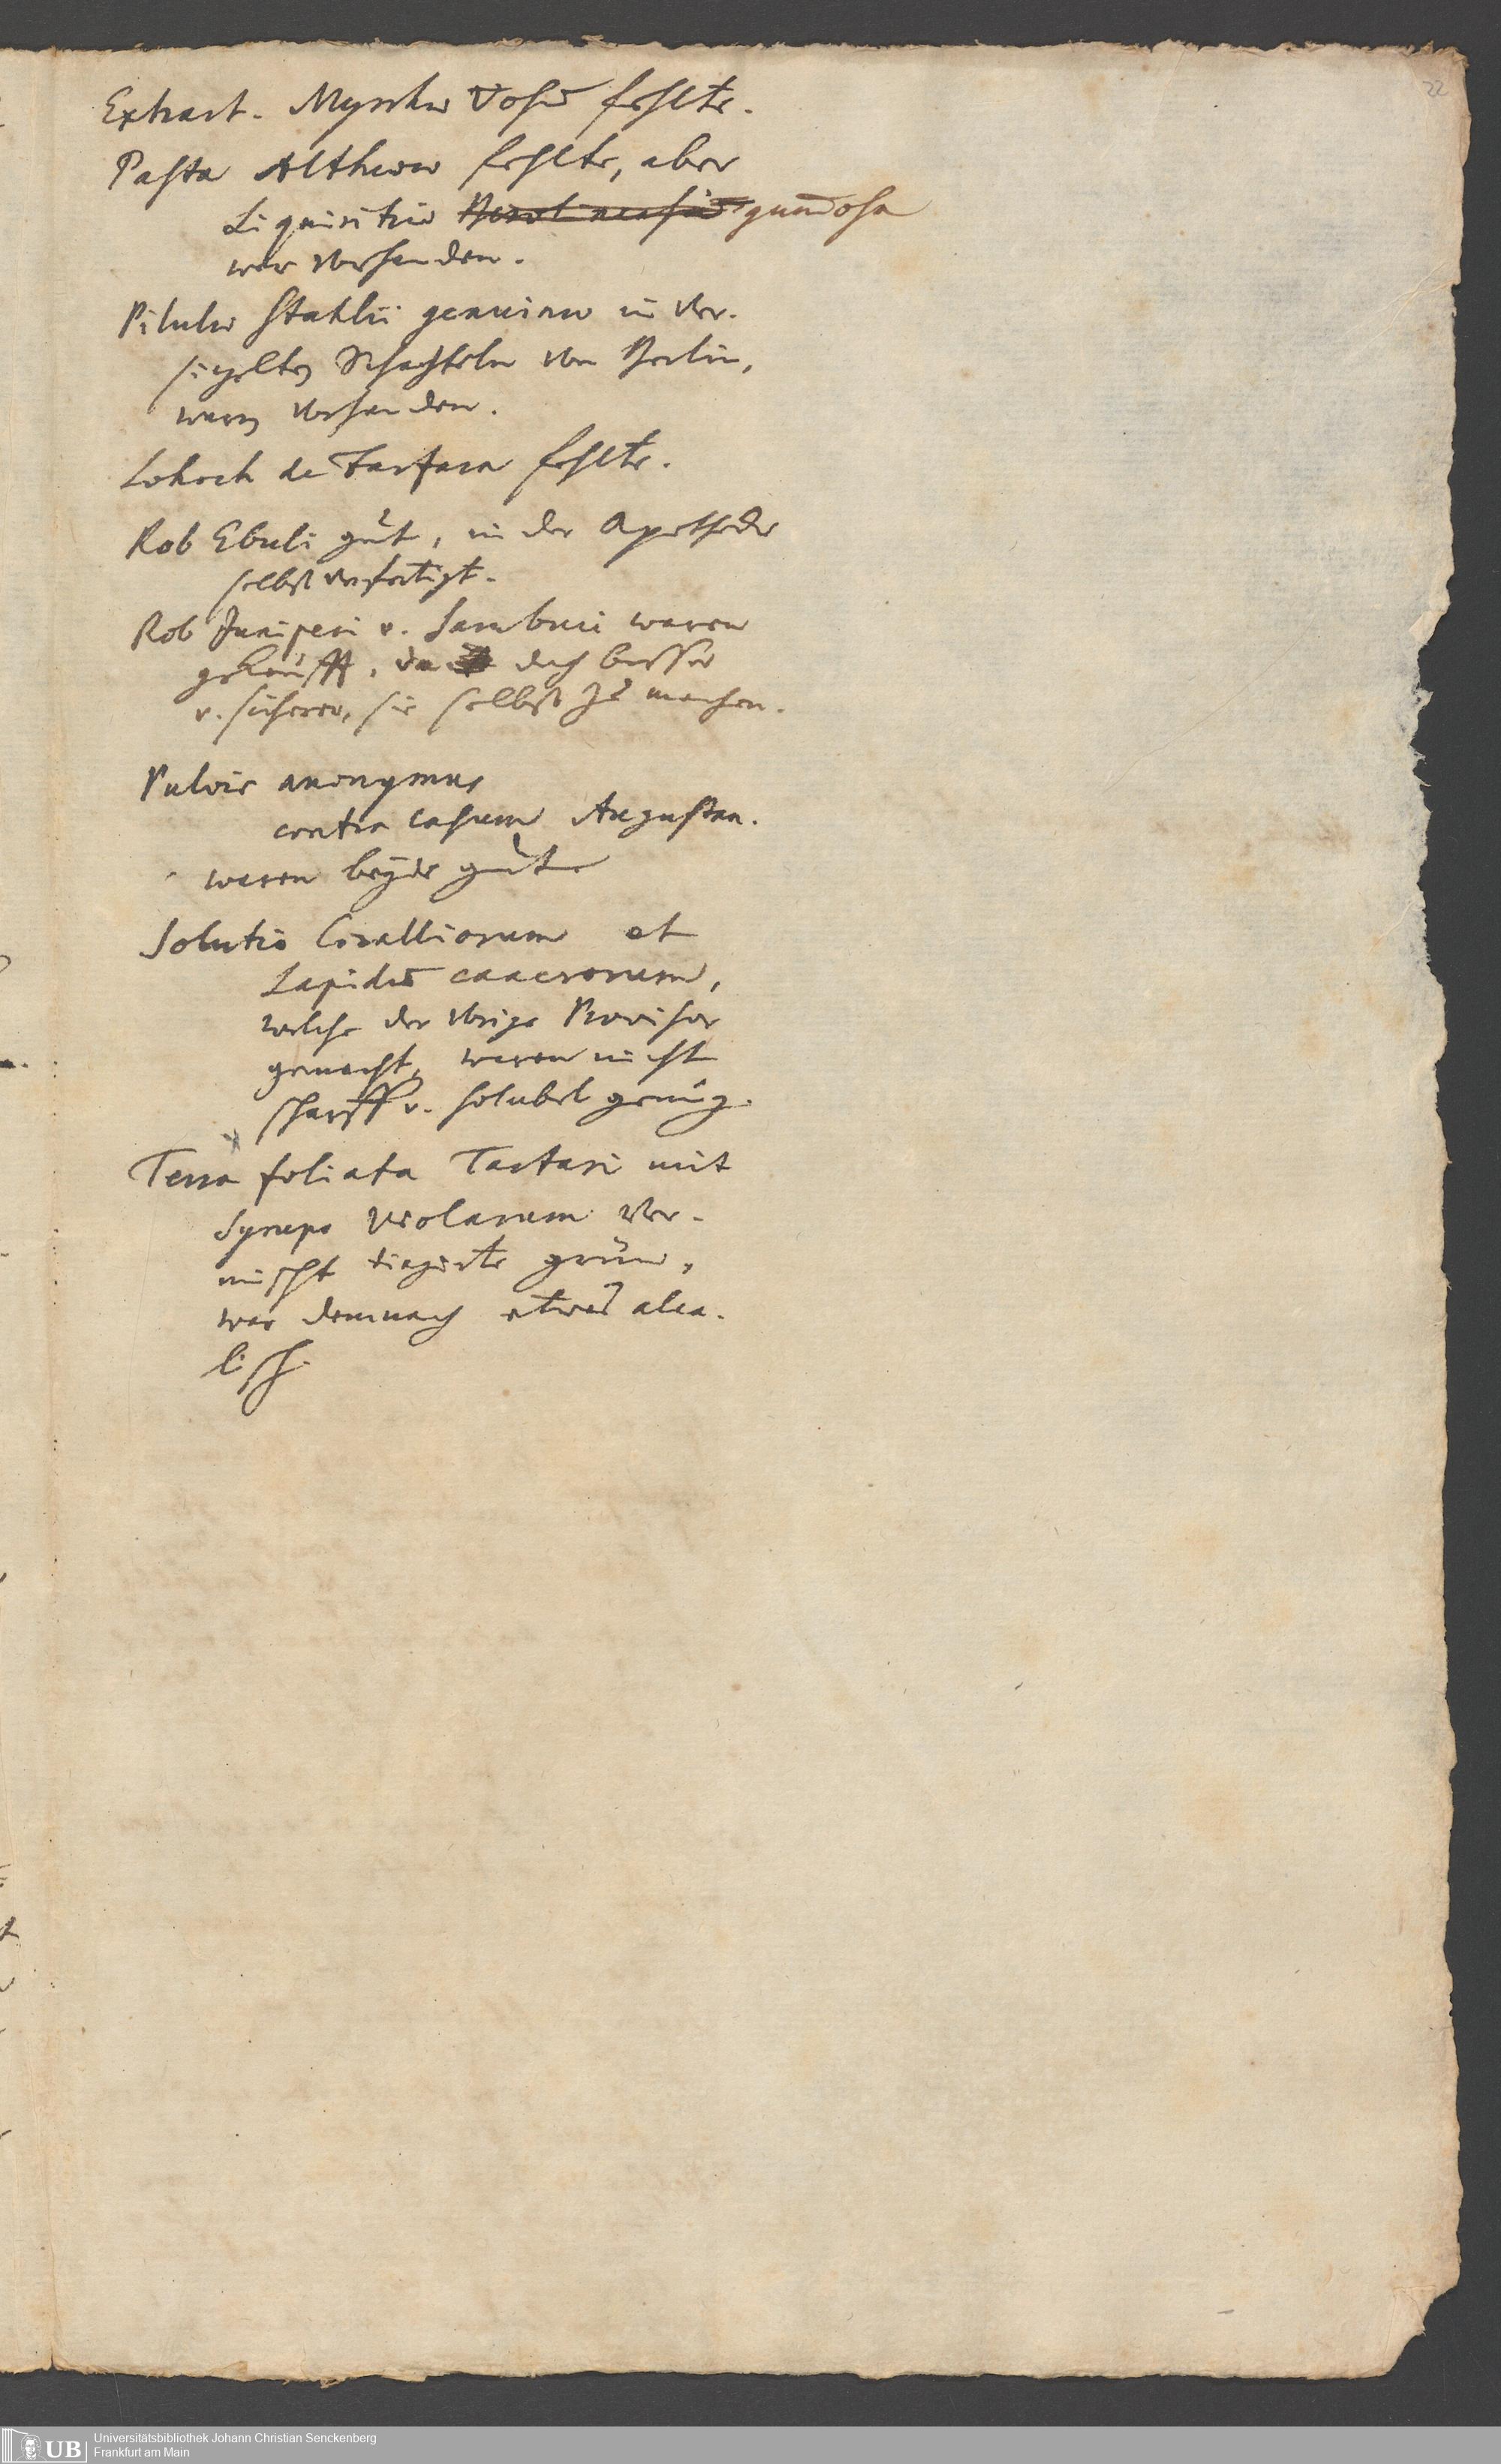 22
Extract. Myrrhæ ▽osū fehlte.
Pasta Altheæ fehlte, aber
Liquiritiæ Berolinensis gum̄osa
war vorhanden.
Pilulæ Stahlii genuinæ in ver-
siegelten Schachteln von Berlin,
waren vorhanden.
Lohoch de Farfara fehlte.
Rob Ebuli gut, in der Apothecke
selbst verfertigt.
Rob Juniperi v. Sambuci waren
gekaufft, da doch besser
v. sicherer, sie selbst zu machen.
Pulvis anonymus
contra casum Augustan.
waren beyde gut
Solutio Coralliorum et
Lapidū cancrorum,
welche der vorige Provisor
gemacht, waren nicht
scharff v. solubel genug.
Terra foliata Tartari mit
Syrupo Violarum ver-
mischt tingirte grün,
war demnach etwas alca-
lisch.
UB
Universitätsbibliothek Johann Christian Senckenberg
Frankfurt am Main